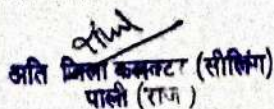 अति जिला कलक्टर (सीलिंग)
पाली (राज)